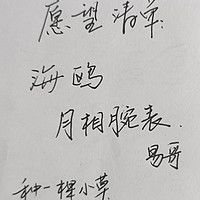 愿望清单:
海鸥
月相腕表.
易哥
种一棵小草